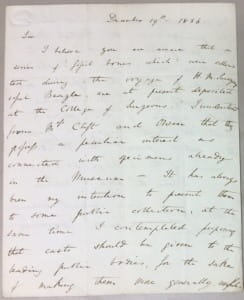 December 19th. 1836
Sir
I believe you are aware that a
series of fossil bones which were collec-
ted during the voyage of H.M. Surveying
vessel Beagle, are at present deposited
at the College of Surgeons. I understand
from Mr Clift and Owen that they
possess a peculiar interest as
connected with specimens already
in the Museum — It has always
been my intention to present them
to some public collection, at the
same time I contemplated proposing
that casts should be given to the
leading public bodies, for the sake
of making them more generally useful